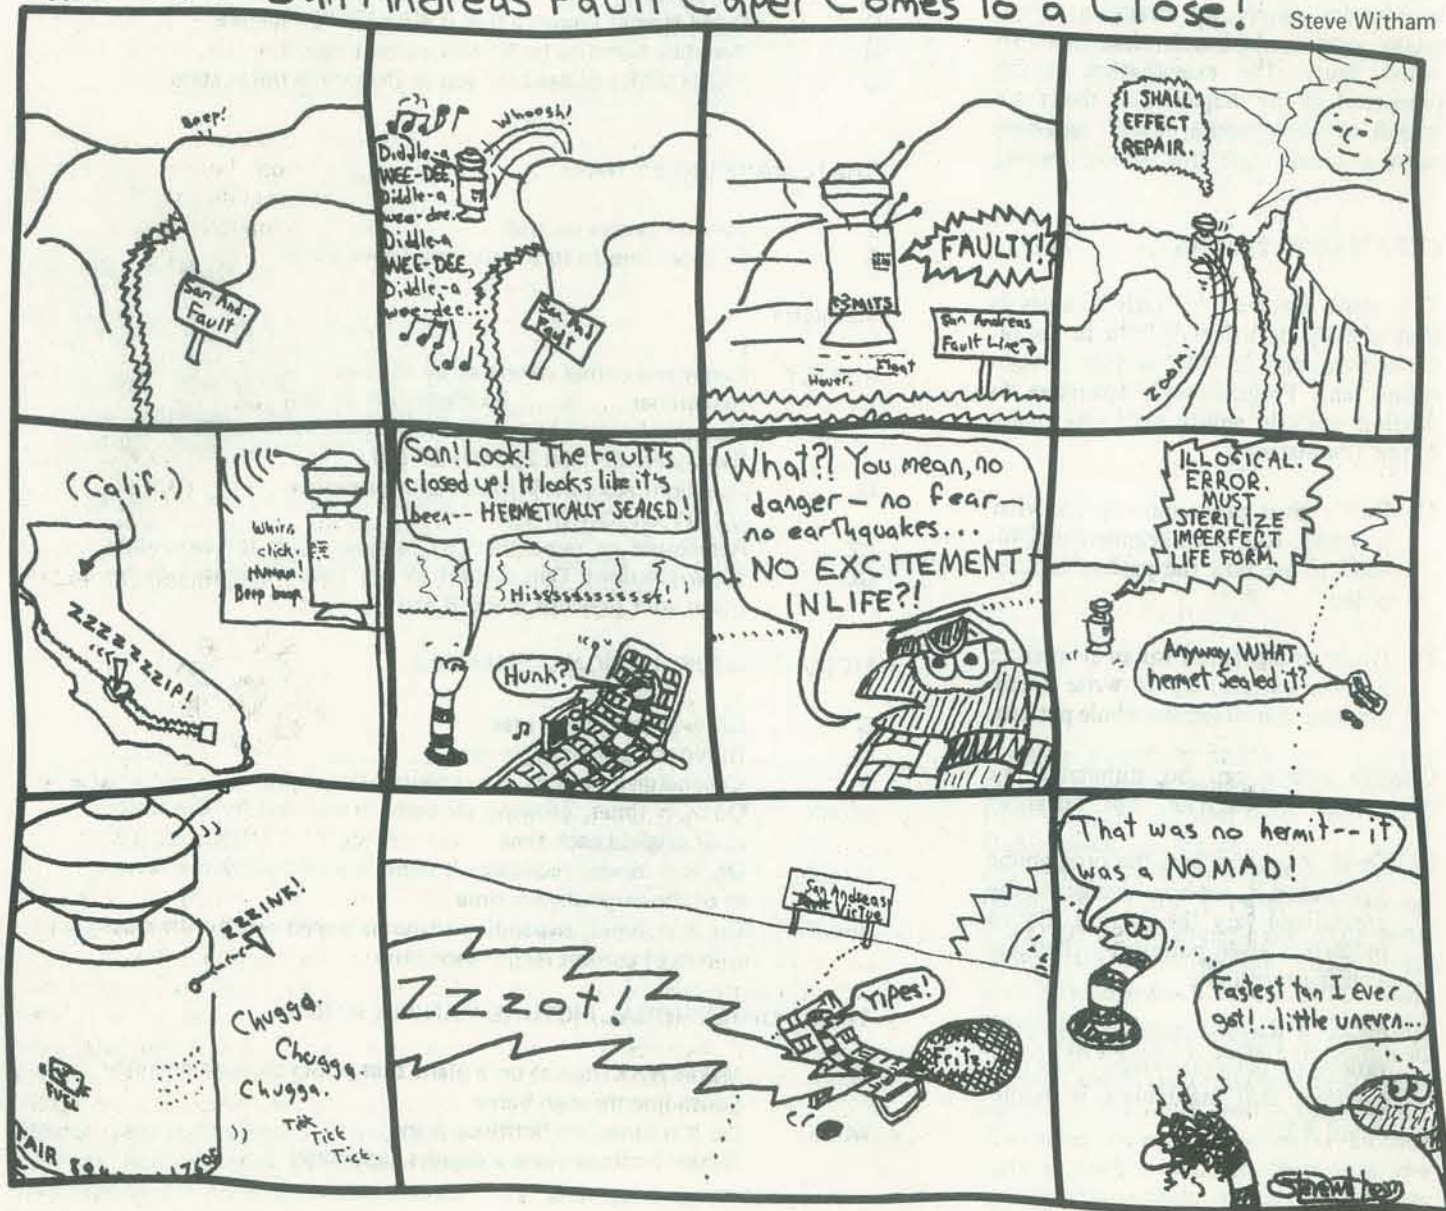 San Andreas Fault Caper Comes To a Close!
Steve Witham
Beep!
San And.
Fault
Whoosh!
Diddle-a
WEE-DEE,
Diddle-a
wee-dee.
Diddle-a
WEE-DEE,
Diddle-a
wee-dee..
San And
Fault
FAULTY!
MITS
San Andreas
Fault Line
Hover.
Float
I SHALL
EFFECT
REPAIR.
ZOOM!
(Calif.)
ZZZZZZZIP!
Whirr,
click.
thump!
Beep boop
San! Look! The Fault's
closed up! It looks like it's
been-- HERMETICALLY SEALED!
Hisssssssssss!
Hunh?
What?! You mean, no
danger - no fear--
no earthquakes...
...NO EXCITEMENT
IN LIFE?!
ILLOGICAL.
ERROR.
MUST
STERILIZE
IMPERFECT
LIFE FORM.
Anyway, WHAT
hermet sealed it?
ZZINK!
Chugga.
Chugga.
Chugga.
Tik
Tick
Tick.
San Andreas
Virtue
Zzzot!
Yipes!
Fritz.
That was no hermit-- it
was a NOMAD!
Fastest tan I ever
got!...little uneven...